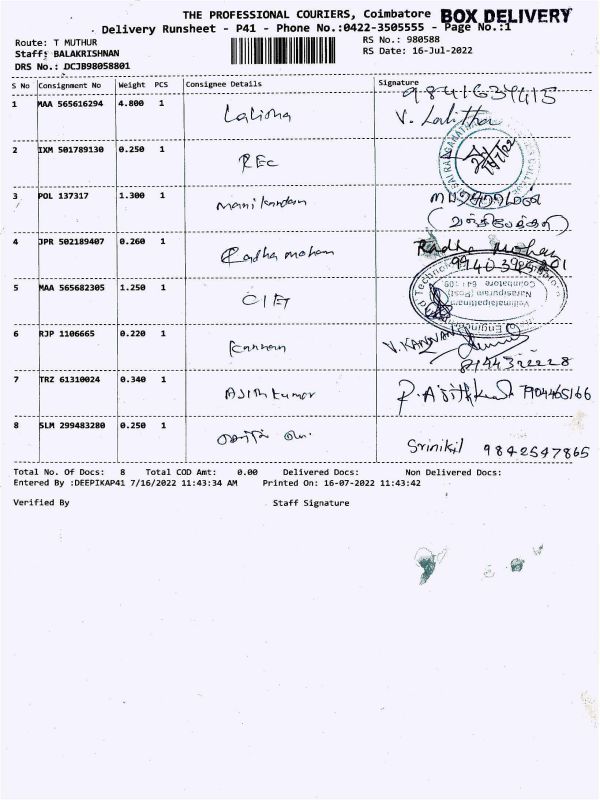 THE PROFESSIONAL COURIERS, Coimbatore BOX DELIVERY
Delivery Runsheet - P41 - Phone No.:0422-3505555 - Page No.:1
Route: T MUTHUR RS No.: 980588
Staff: BALAKRISHNAN RS Date: 16-Jul-2022
DRS No.: DCJB98058801
S No Consignment No Weight PCS Consignee Details Signature
9841639415
1 MAA 565616294 4.800 1 Lalitha V. Lalitha
2 IXM 501789130 0.250 1 REC
3 POL 137317 1.300 1 Manikandam
4 JPR 502189407 0.260 1 Radha mohan Radha mohan
5 MAA 565682305 1.250 1 CIET
Coimbatore 641 109
Narasipuram (Post)
6 RJP 1106665 0.220 1 Kannan V.KANNAN
7 TRZ 61310024 0.340 1 Ajith kumar 7904465166
8 SLM 299483280 0.250 1 Srinikil 9842547865
Total No. Of Docs: 8 Total COD Amt: 0.00 Delivered Docs: Non Delivered Docs:
Entered By :DEEPIKAP41 7/16/2022 11:43:34 AM Printed On: 16-07-2022 11:43:42
Verified By Staff Signature